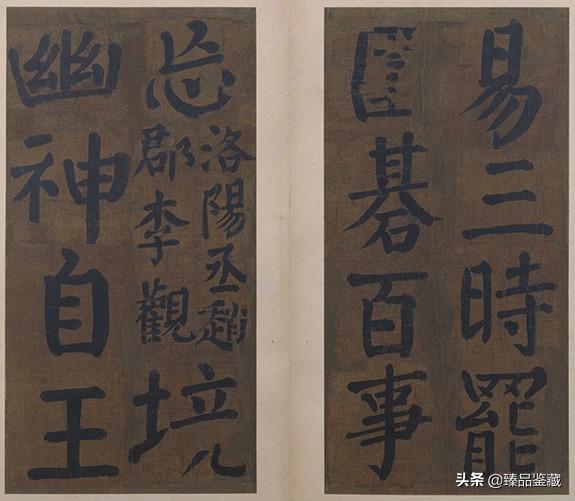 易三時罷
圍碁百事
忘
洛陽丞趙
郡李觀
境
幽神自王
头条 @臻品鉴藏